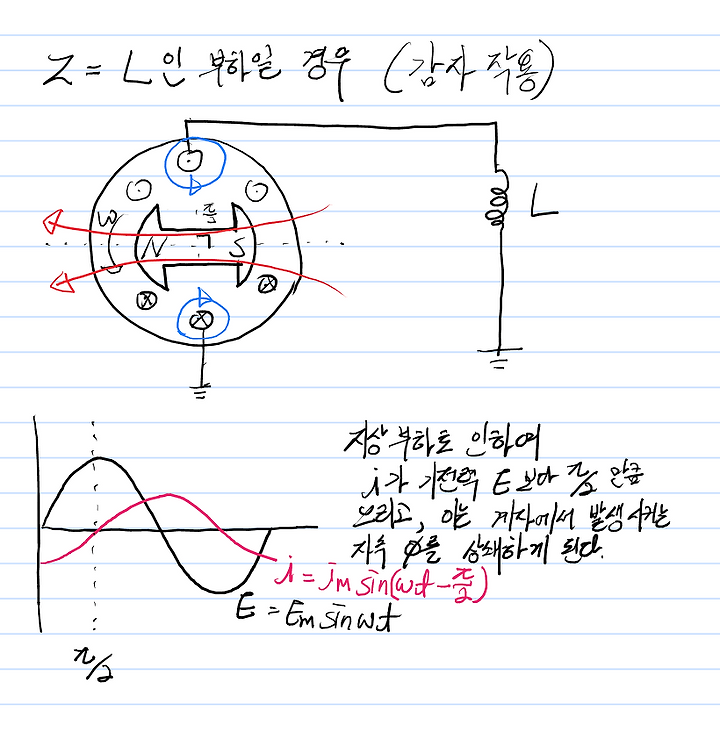 Z = L인 부하일 경우 (감자 작용)
ω
N
S
L
지상 부하로 인하여
i가 기전력 E 보다 π/2 만큼
느리고, 이는 계자에서 발생시키는
자속 ϕ를 상쇄하게 된다.
i = im sin(ωt - π/2)
E = Em sin ωt
π/2